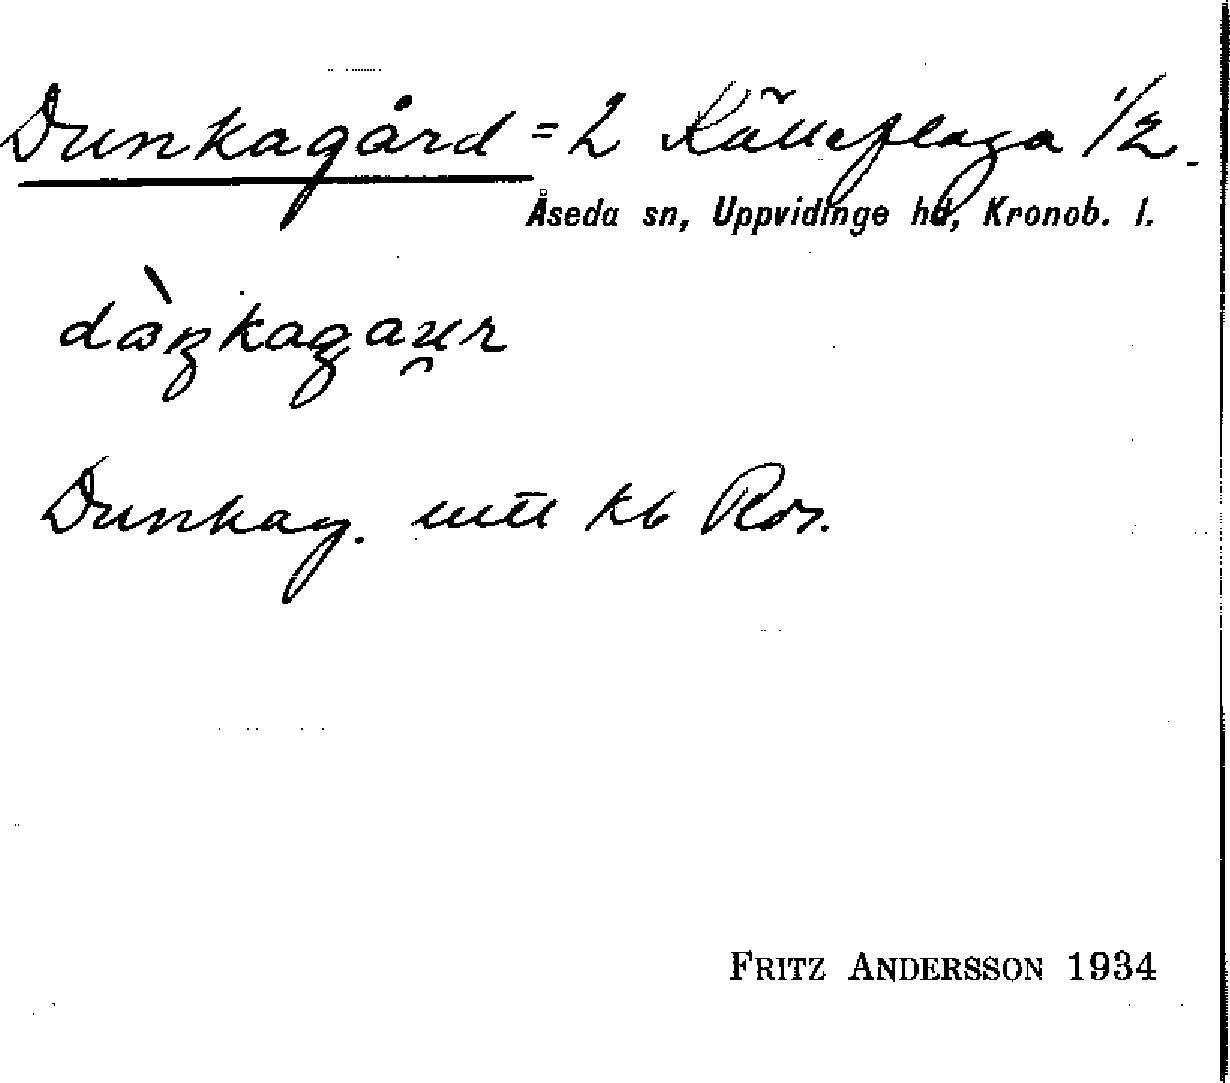 Dunkagård = L Källeflaga 1/2.
Åseda sn, Uppvidinge hd, Kronob. l.
Dunkag. utt kb Ros.
FRITZ ANDERSSON 1934